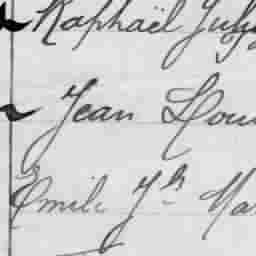 Raphaël July
Jean Lou
Emile Jh Ma